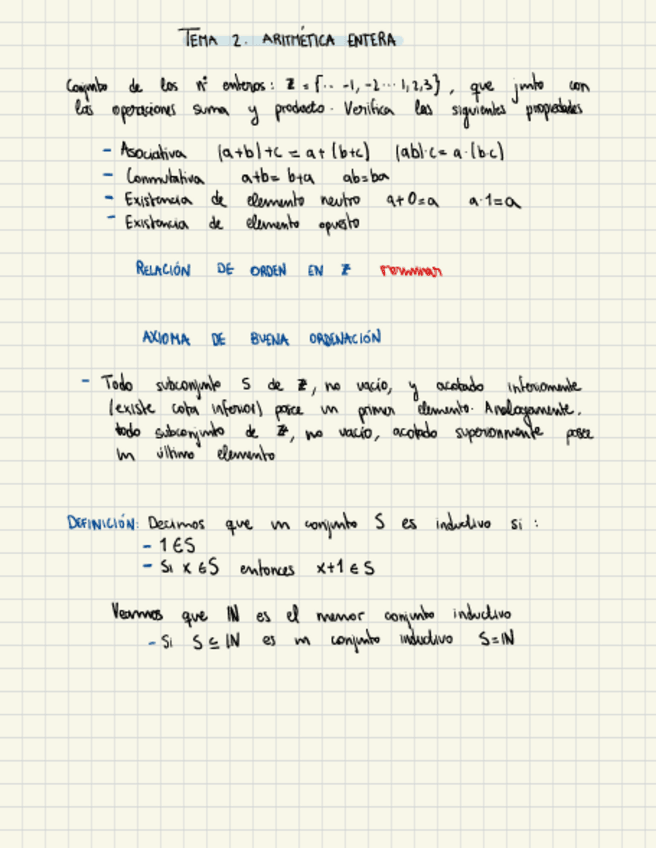 TEMA 2. ARITMÉTICA ENTERA
Conjunto de los nº enteros: Z = {... -1, -2 ... 1, 2, 3}, que junto con
las operaciones suma y producto. Verifica las siguientes propiedades
- Asociativa (a+b)+c = a+(b+c) (ab)·c = a·(b·c)
- Conmutativa a+b = b+a ab=ba
- Existencia de elemento neutro a+0=a a·1=a
- Existencia de elemento opuesto
RELACIÓN DE ORDEN EN Z terminar
AXIOMA DE BUENA ORDENACIÓN
- Todo subconjunto S de Z, no vacío, y acotado inferiormente
(existe cota inferior) posee un primer elemento. Analogamente,
todo subconjunto de Z, no vacío, acotado superiormente posee
un último elemento
DEFINICIÓN: Decimos que un conjunto S es inductivo si :
- 1 ∈ S
- Si x ∈ S entonces x+1 ∈ S
Veamos que ℕ es el menor conjunto inductivo
- Si S ⊆ ℕ es un conjunto inductivo S=ℕ